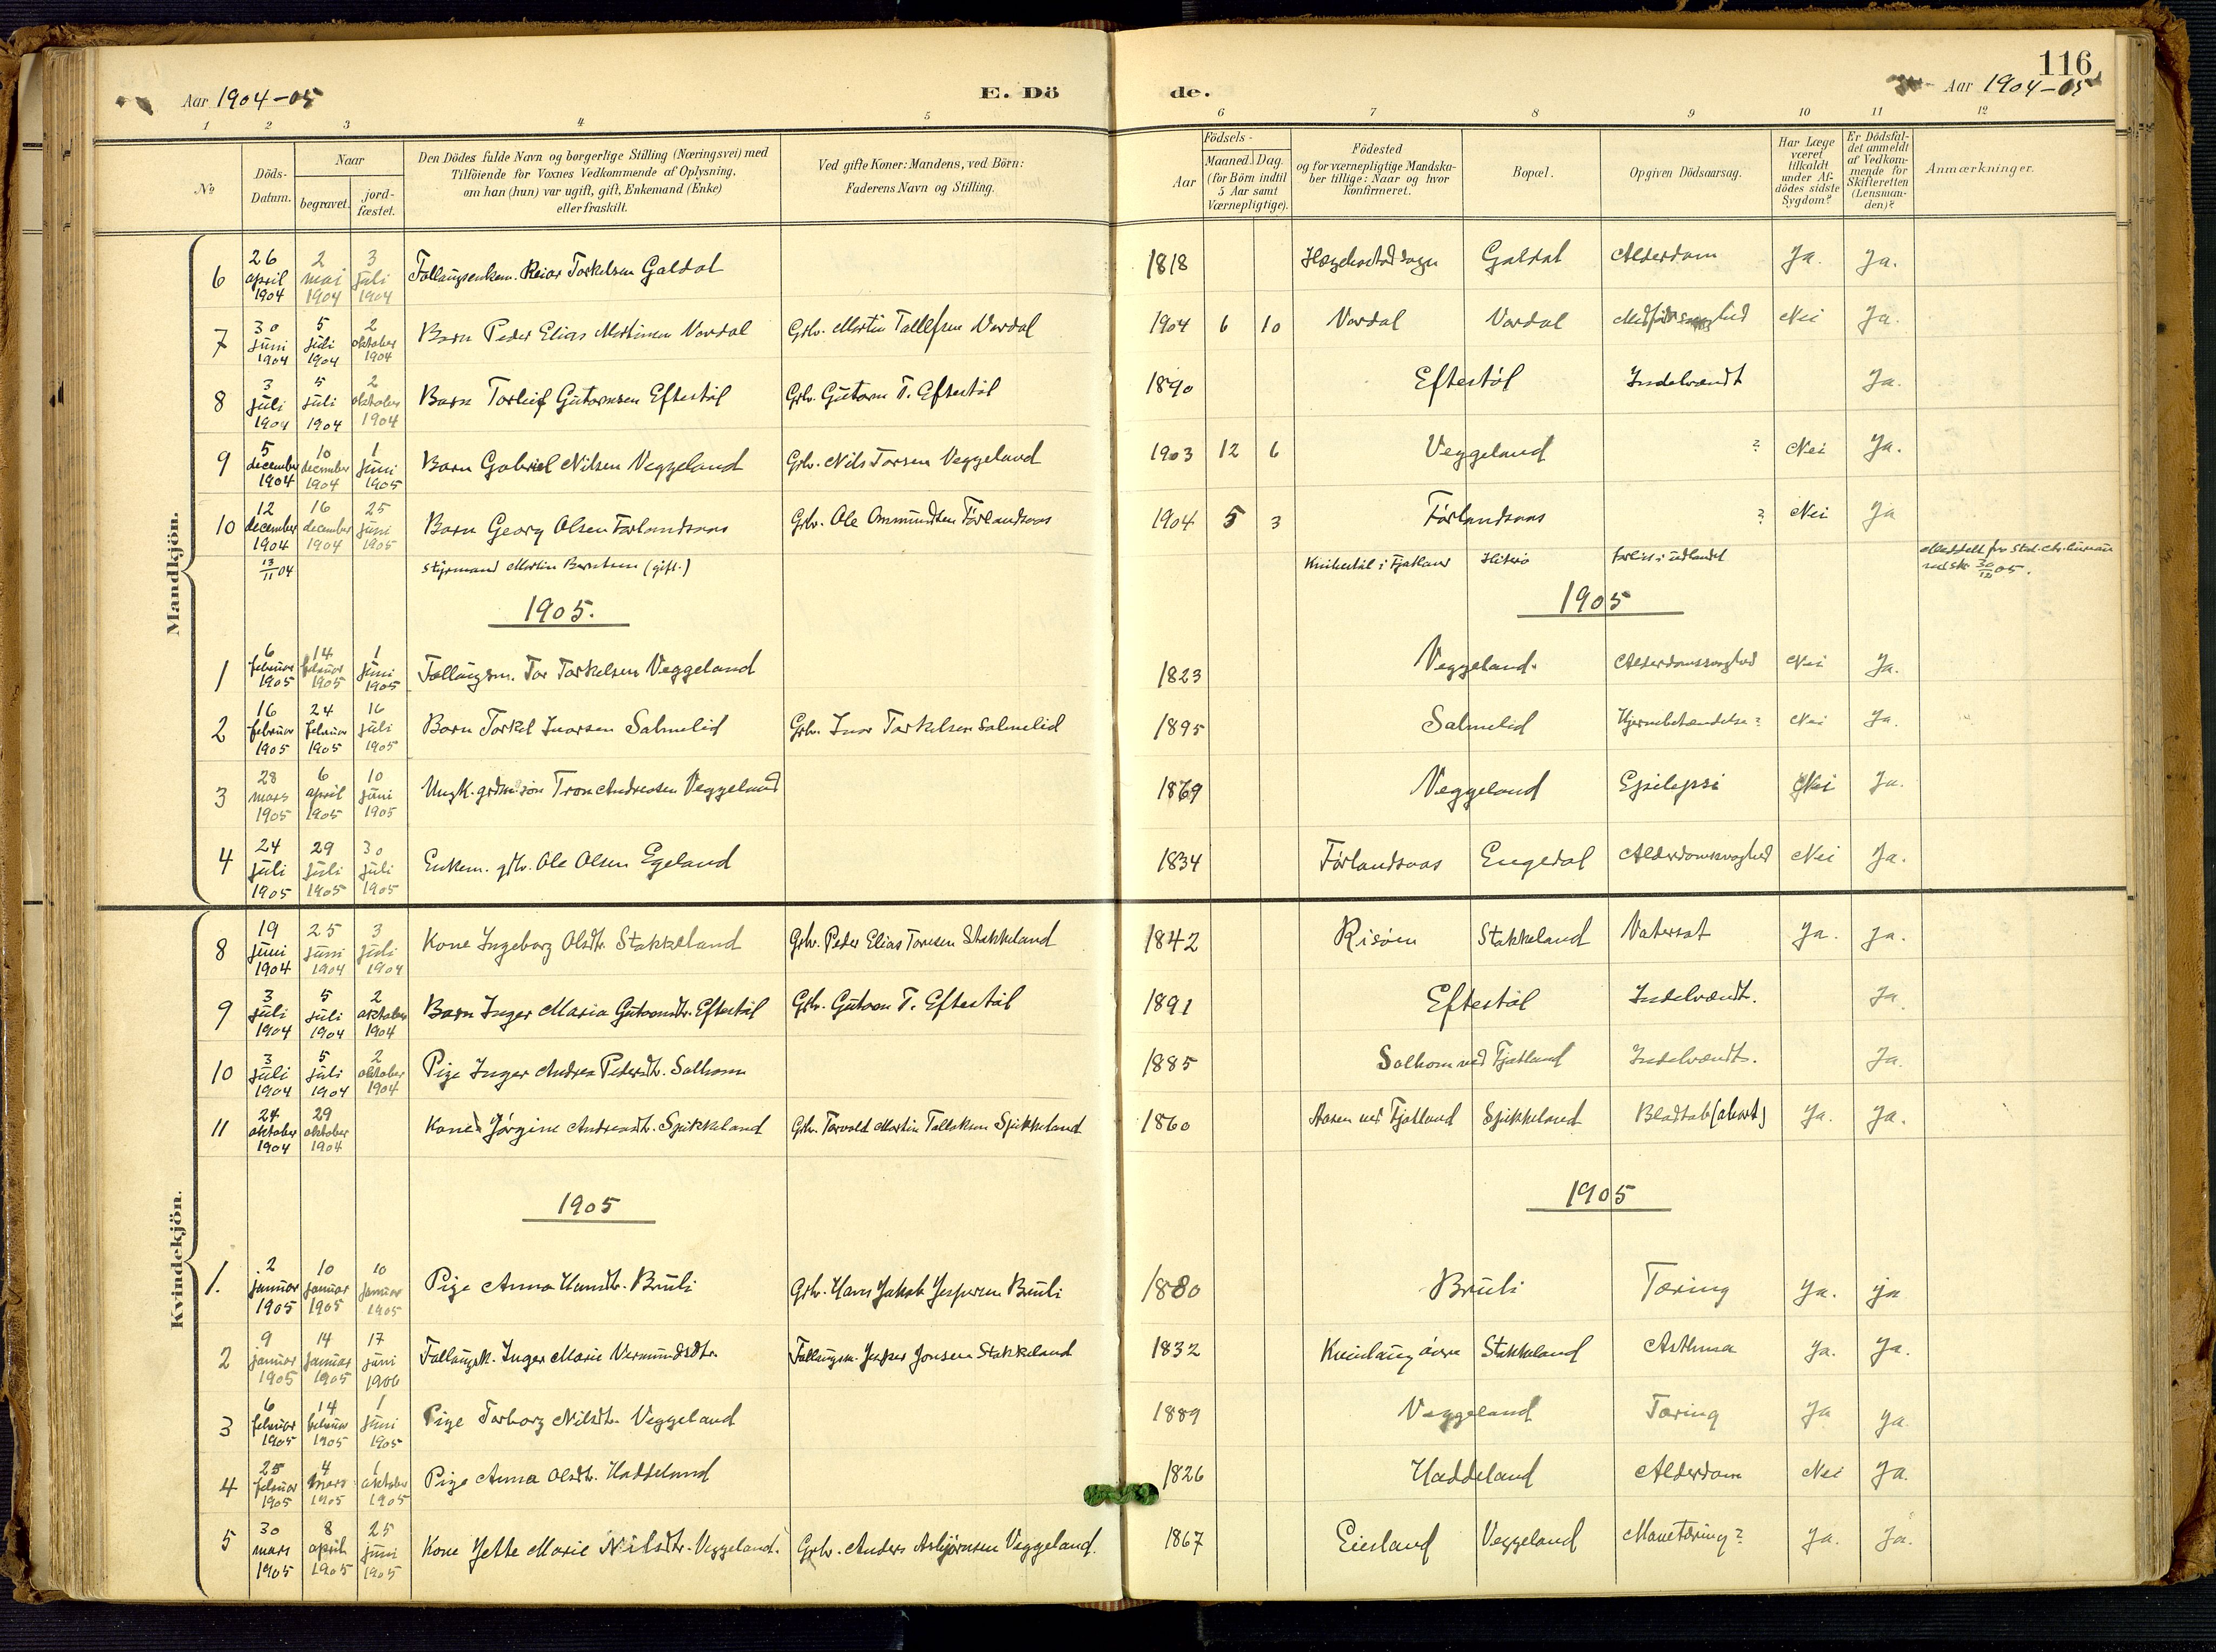 116
Aar 1904-05
E. Dö
de.
Aar 1904-05
1 2 3 4 5 6 7 8 9 10 11 12
No
Döds-Datum.
Naar
begravet.
jord-fæstet.
Den Dödes fulde Navn og borgerlige Stilling (Næringsvei) med
Tilföiende for Voxnes Vedkommende af Oplysning,
om han (hun) var ugift, gift, Enkemand (Enke)
eller fraskilt.
Ved gifte Koner: Mandens, ved Börn:
Faderens Navn og Stilling.
Aar
Födsels-
Maaned. Dag.
(for Börn indtil
5 Aar samt
Værnepligtige).
Födested
og for værnepligtige Mandska-
ber tillige: Naar og hvor
konfirmeret.
Bopæl.
Opgiven Dödsaarsag.
Har Læge
været
tilkaldt
under Af-
dödes sidste
Sygdom?
Er Dödsfal-
det anmeldt
af Vedkom-
mende for
Skifteretten
(Lensman-
den)?
Anmærkninger.
Mandkjön.
6 26 april 1904 2 mai 1904 3 juli 1904 Reiar Torkelsen Galdal 1818 Galdal Alderdom Ja. Ja.
7 30 juni 1904 5 juli 1904 2 oktober 1904 Barn Peder Elias Martinsen Vordal Grbr. Martin Tallefsen Vordal 1904 6 10 Vordal Vordal Nei Ja.
8 3 juli 1904 5 juli 1904 2 oktober 1904 Barn Torleif Gutormsen Eftestöl Grbr. Gutorm T. Eftestöl 1890 Eftestöl Indebrændt Ja.
9 5 december 1904 10 december 1904 1 juni 1905 Barn Gabriel Nilsen Veggeland Grbr. Nils Torsen Veggeland 1903 12 6 Veggeland ? Nei Ja.
10 12 december 1904 16 december 1904 25 juni 1905 Barn Georg Olsen Förlandsaas Grbr. Ole Ommundsen Förlandsaas 1904 5 3 Förlandsaas ? Nei Ja
13/11 04 Styrmand Martin Berntsen (gift.) i Fjotland Hiterö forlist i udlandet 30/12 05.
1905.
1905
1 6 februar 1905 14 februar 1905 1 juni 1905 Tor Torkelsen Veggeland 1823 Veggeland. Alderdomssvaghed Nei Ja.
2 16 februar 1905 24 februar 1905 16 juli 1905 Barn Torkel Ivarsen Salmelid Grbr. Ivar Torkelsen Salmelid 1895 Salmelid Hjernebetændelse? Nei Ja.
3 28 mars 1905 6 april 1905 10 juni 1905 Ungk. Tron Andreasen Veggeland 1869 Veggeland Epilepsi Nei Ja.
4 24 juli 1905 29 juli 1905 30 juli 1905 Enkem. grbr. Ole Olsen Egeland 1834 Förlandsaas Engedal Alderdomssvaghed Nei Ja.
Kvindekjön.
8 19 juni 1904 25 juni 1904 3 juli 1904 Kone Ingeborg Olsdtr. Stakkeland Grbr. Peder Elias Torsen Stakkeland 1842 Risöen Stakkeland Vatersot Ja. Ja.
9 3 juli 1904 5 juli 1904 2 oktober 1904 Barn Inger Maria Gutormdtr. Eftestöl Grbr. Gutorm T. Eftestöl 1891 Eftestöl Indebrændt. Ja
10 3 juli 1904 5 juli 1904 2 oktober 1904 Pige Inger Andrea Pedersdtr. Solhom 1885 Solhom ved Fjotland Indebrændt. Ja.
11 24 oktober 1904 29 oktober 1904 Kone Jörgine Andreasdtr. Spikkeland Grbr. Torvald Martin Tallaksen Spikkeland 1860 Aasen ved Fjotland Spikkeland Blodtab (abort) Ja. Ja.
1905
1905
1. 2 januar 1905 10 januar 1905 10 januar 1905 Pige Anna Hansdtr. Bruli Grbr. Hans Jakob Jespersen Bruli 1880 Bruli Tæring Ja. ja
2 9 januar 1905 14 januar 1905 17 juni 1906 Inger Marie Vermundsdtr. Jesper Jonsen Stakkeland 1832 Stakkeland Asthma Ja. Ja.
3 6 februar 1905 14 februar 1905 1 juni 1905 Pige Torborg Nilsdtr. Veggeland 1889 Veggeland Tæring Ja Ja.
4 25 februar 1905 4 mars 1905 1 oktober 1905 Pige Anna Olsdtr. Haddeland 1826 Haddeland Alderdom Nei Ja.
5 30 mars 1905 8 april 1905 25 juni 1905 Kone Jette Marie Nilsdtr. Veggeland. Grbr. Anders Asbjörnsen Veggeland. 1867 Eiesland Veggeland Mavetæring? Ja. Ja.